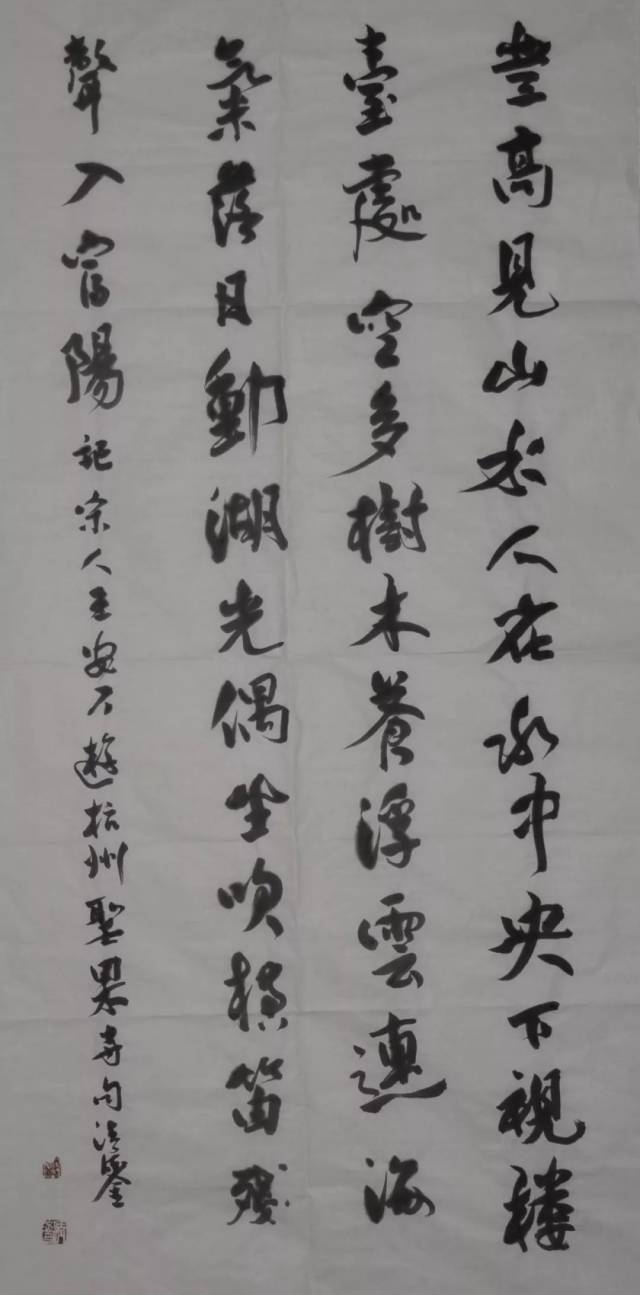 登高見山水人在水中央下視樓
臺處空多樹木蒼浮雲連海
氣落日動湖光偶坐吹橫笛殘
聲入富陽 記宋人王安石遊杭州聖果寺句